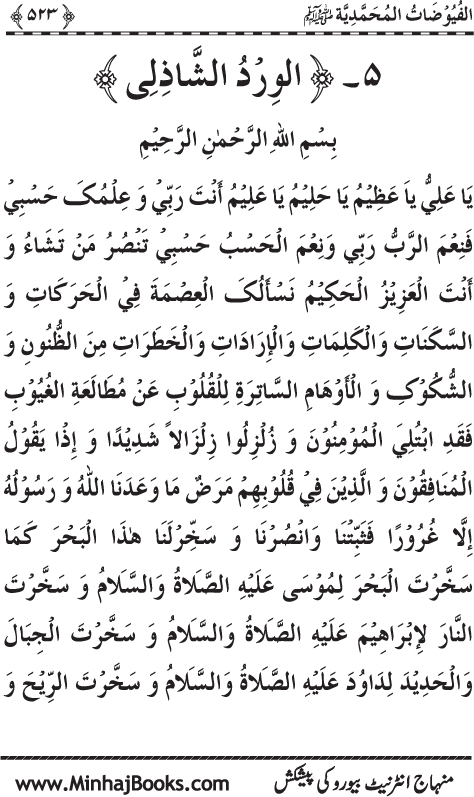 الفُيُوْضَاتُ المُحَمَّدِيَّة ﷺ ﴿ ۵۲۳ ﴾
۵۔ ﴿ الوِرْدُ الشَّاذِلِی ﴾
بِسْمِ اللهِ الرَّحْمٰنِ الرَّحِيْمِ
يَا عَلِيُّ ياَ عَظِيْمُ يَا حَلِيْمُ يَا عَلِيْمُ أَنْتَ رَبِّيْ وَ عِلْمُکَ حَسْبِيْ
فَنِعْمَ الرَّبُّ رَبِّي وَنِعْمَ الْحَسْبُ حَسْبِيْ تَنْصُرُ مَنْ تَشَاءُ وَ
أَنْتَ الْعَزِيْزُ الْحَکِيْمُ نَسْأَلُکَ الْعِصْمَةَ فِيْ الْحَرَکَاتِ وَ
السَّکَنَاتِ وَالْکَلِمَاتِ وَالْإِرَادَاتِ وَالْخَطَرَاتِ مِنَ الظُّنُونِ وَ
الشُّکُوْکِ وَ الْأَوْهَامِ السَّاتِرَةِ لِلْقُلُوْبِ عَنْ مُطَالَعَةِ الْغُيُوْبِ
فَقَدِ ابْتُلِيَ الْمُوْمِنُوْنَ وَ زُلْزِلُوا زِلْزَالاً شَدِيْدًا وَ إِذْا يَقُوْلُ
الْمُنَافِقُوْنَ وَ الَّذِيْنَ فِيْ قُلُوْبِهِمْ مَرَضٌ مَا وَعَدَنَا اللهُ وَ رَسُوْلُهُ
إِلَّا غُرُوْرًا فَثَبِّتْنَا وَانْصُرْنَا وَ سَخِّرْلَنَا هٰذَا الْبَحْرَ کَمَا
سَخَّرْتَ الْبَحْرَ لِمُوْسَی عَلَيْهِ الصَّلَاةُ وَالسَّلَامُ وَ سَخَّرْتَ
النَّارَ لِإِبْرَاهِيْمَ عَلَيْهِ الصَّلَاةُ وَالسَّلَامُ وَ سَخَّرْتَ الْجِبَالَ
وَالْحَدِيْدَ لِدَاوُدَ عَلَيْهِ الصَّلَاةُ وَالسَّلَامُ وَ سَخَّرْتَ الرِّيْحَ وَ
منہاج انٹرنیٹ بیورو کی پیشکش www.MinhajBooks.com